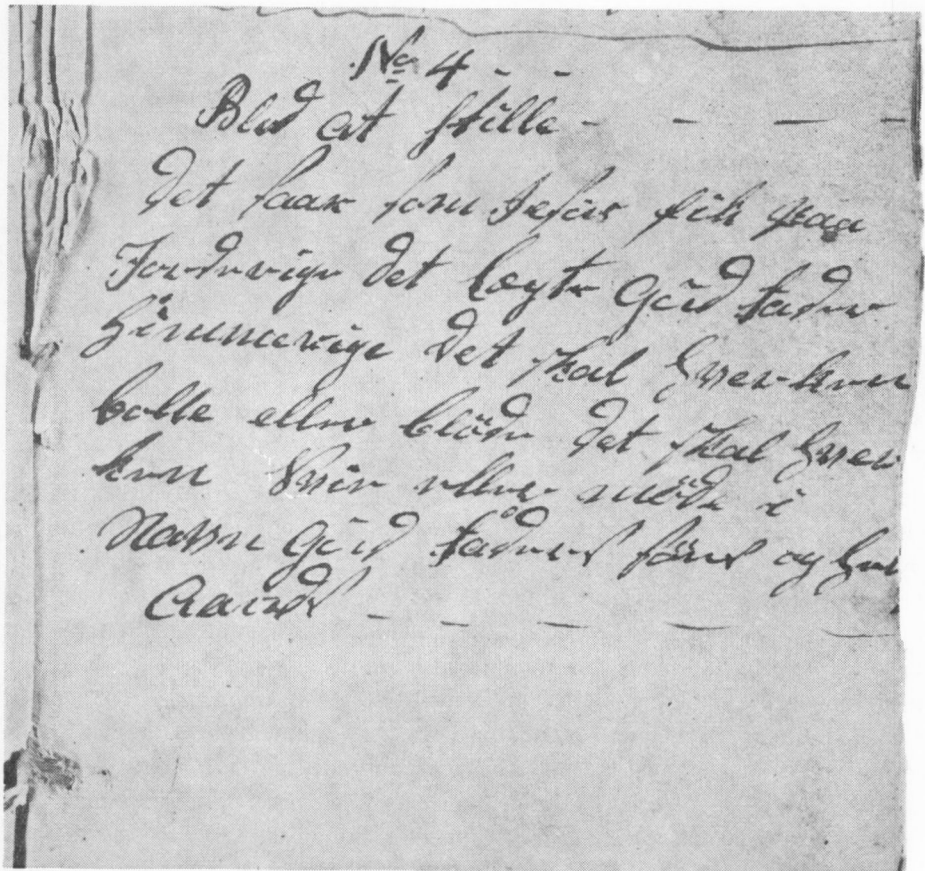 No 4 - -
Blod at stille - - - -
det saar som Jesus fik paa
Jorderige det lægte Gud fader
Himmerige det skal Hverken
bolle eller blöde det skal Hver
ken Svie eller
Navn Gud faders söns og
Aands - - - - -